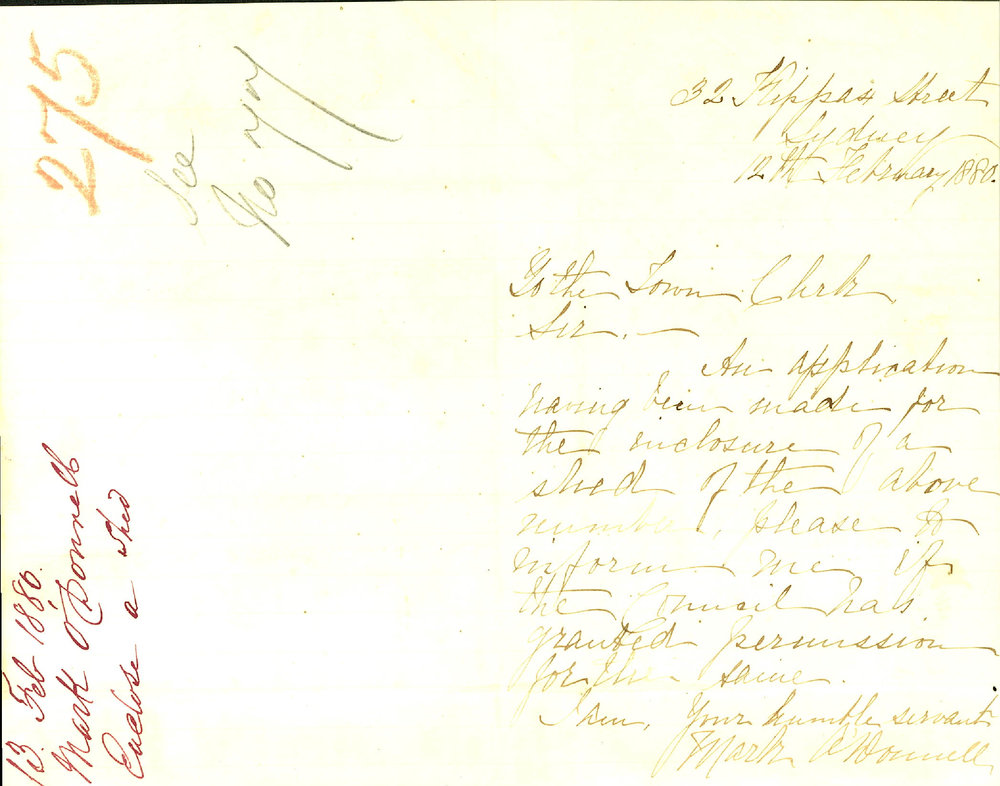 275
See
No
13. Feb 1880.
Mark O'Donnell
Enclose a shed
32 Kippax Street
Sydney
12th February 1880.
To the Town Clerk
Sir, —
An application
having been made for
the inclosure of a
shed of the above
number, please to
inform me if
the Council has
granted permission
for the same.
I am, Your humble servant
Mark O'Donnell